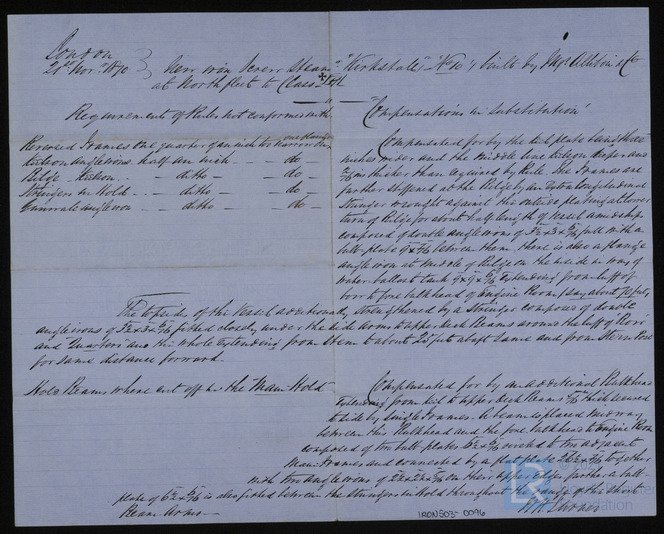 London
21st Novr. 1870
New Iron Screw Steamer "Kirkstall" No 10, built by Messrs Allibin & Co
at Northfleet to Class
Requirements of Rules not conformed with
"Compensations in substitution"
Reversed Frames one quarter of an inch too narrow one flange
Keelson angle irons half an inch — do —
Bilge Keelson — ditto — do —
Stringer in Hold — ditto — do —
Gunwale angle iron — ditto — do —
Compensated for by the keel plate being three
inches wider and the middle line Keelson deeper and
thicker than required by Rule. The Frames are
further stiffened at the Bilge by an Extra Longitudinal
Stringer wrought against the outside plating at lower
turn of Bilge for about half length of vessel amidships
composed of double angle irons of 3½ x 3 x full with a
bulb plate between them. There is also a flange
angle iron at middle of Bilge on the inside in way of
water ballast tank extending from luff of
bow to fore bulkhead of Engine Room, say about
The topsides of the vessel additionally strengthened by a Stringer composed of double
angle irons of 3½ x 3 x fitted closely under the side Arms to upper deck Beams around the luff of Bow
and Quarters and the whole extending from Stem to about 25 feet abaft same and from Stern Post
for same distance forward.
Hold Beams where cut off in the Main Hold
Compensated for by an additional Bulkhead
extending from keel to upper deck Beams thick secured
to side by single Frames. A beam is placed midway
between this Bulkhead and the fore bulkhead to Engine Room
composed of two bulb plates riveted to two adjacent
Main Frames and connected by a flat plate together
with two angle irons of 2½ x 2½ x on their upper edge, further a bulb
plate of is also fitted between the Stringer in Hold throughout the range of the short
Beam Arms —
IRON503-0096